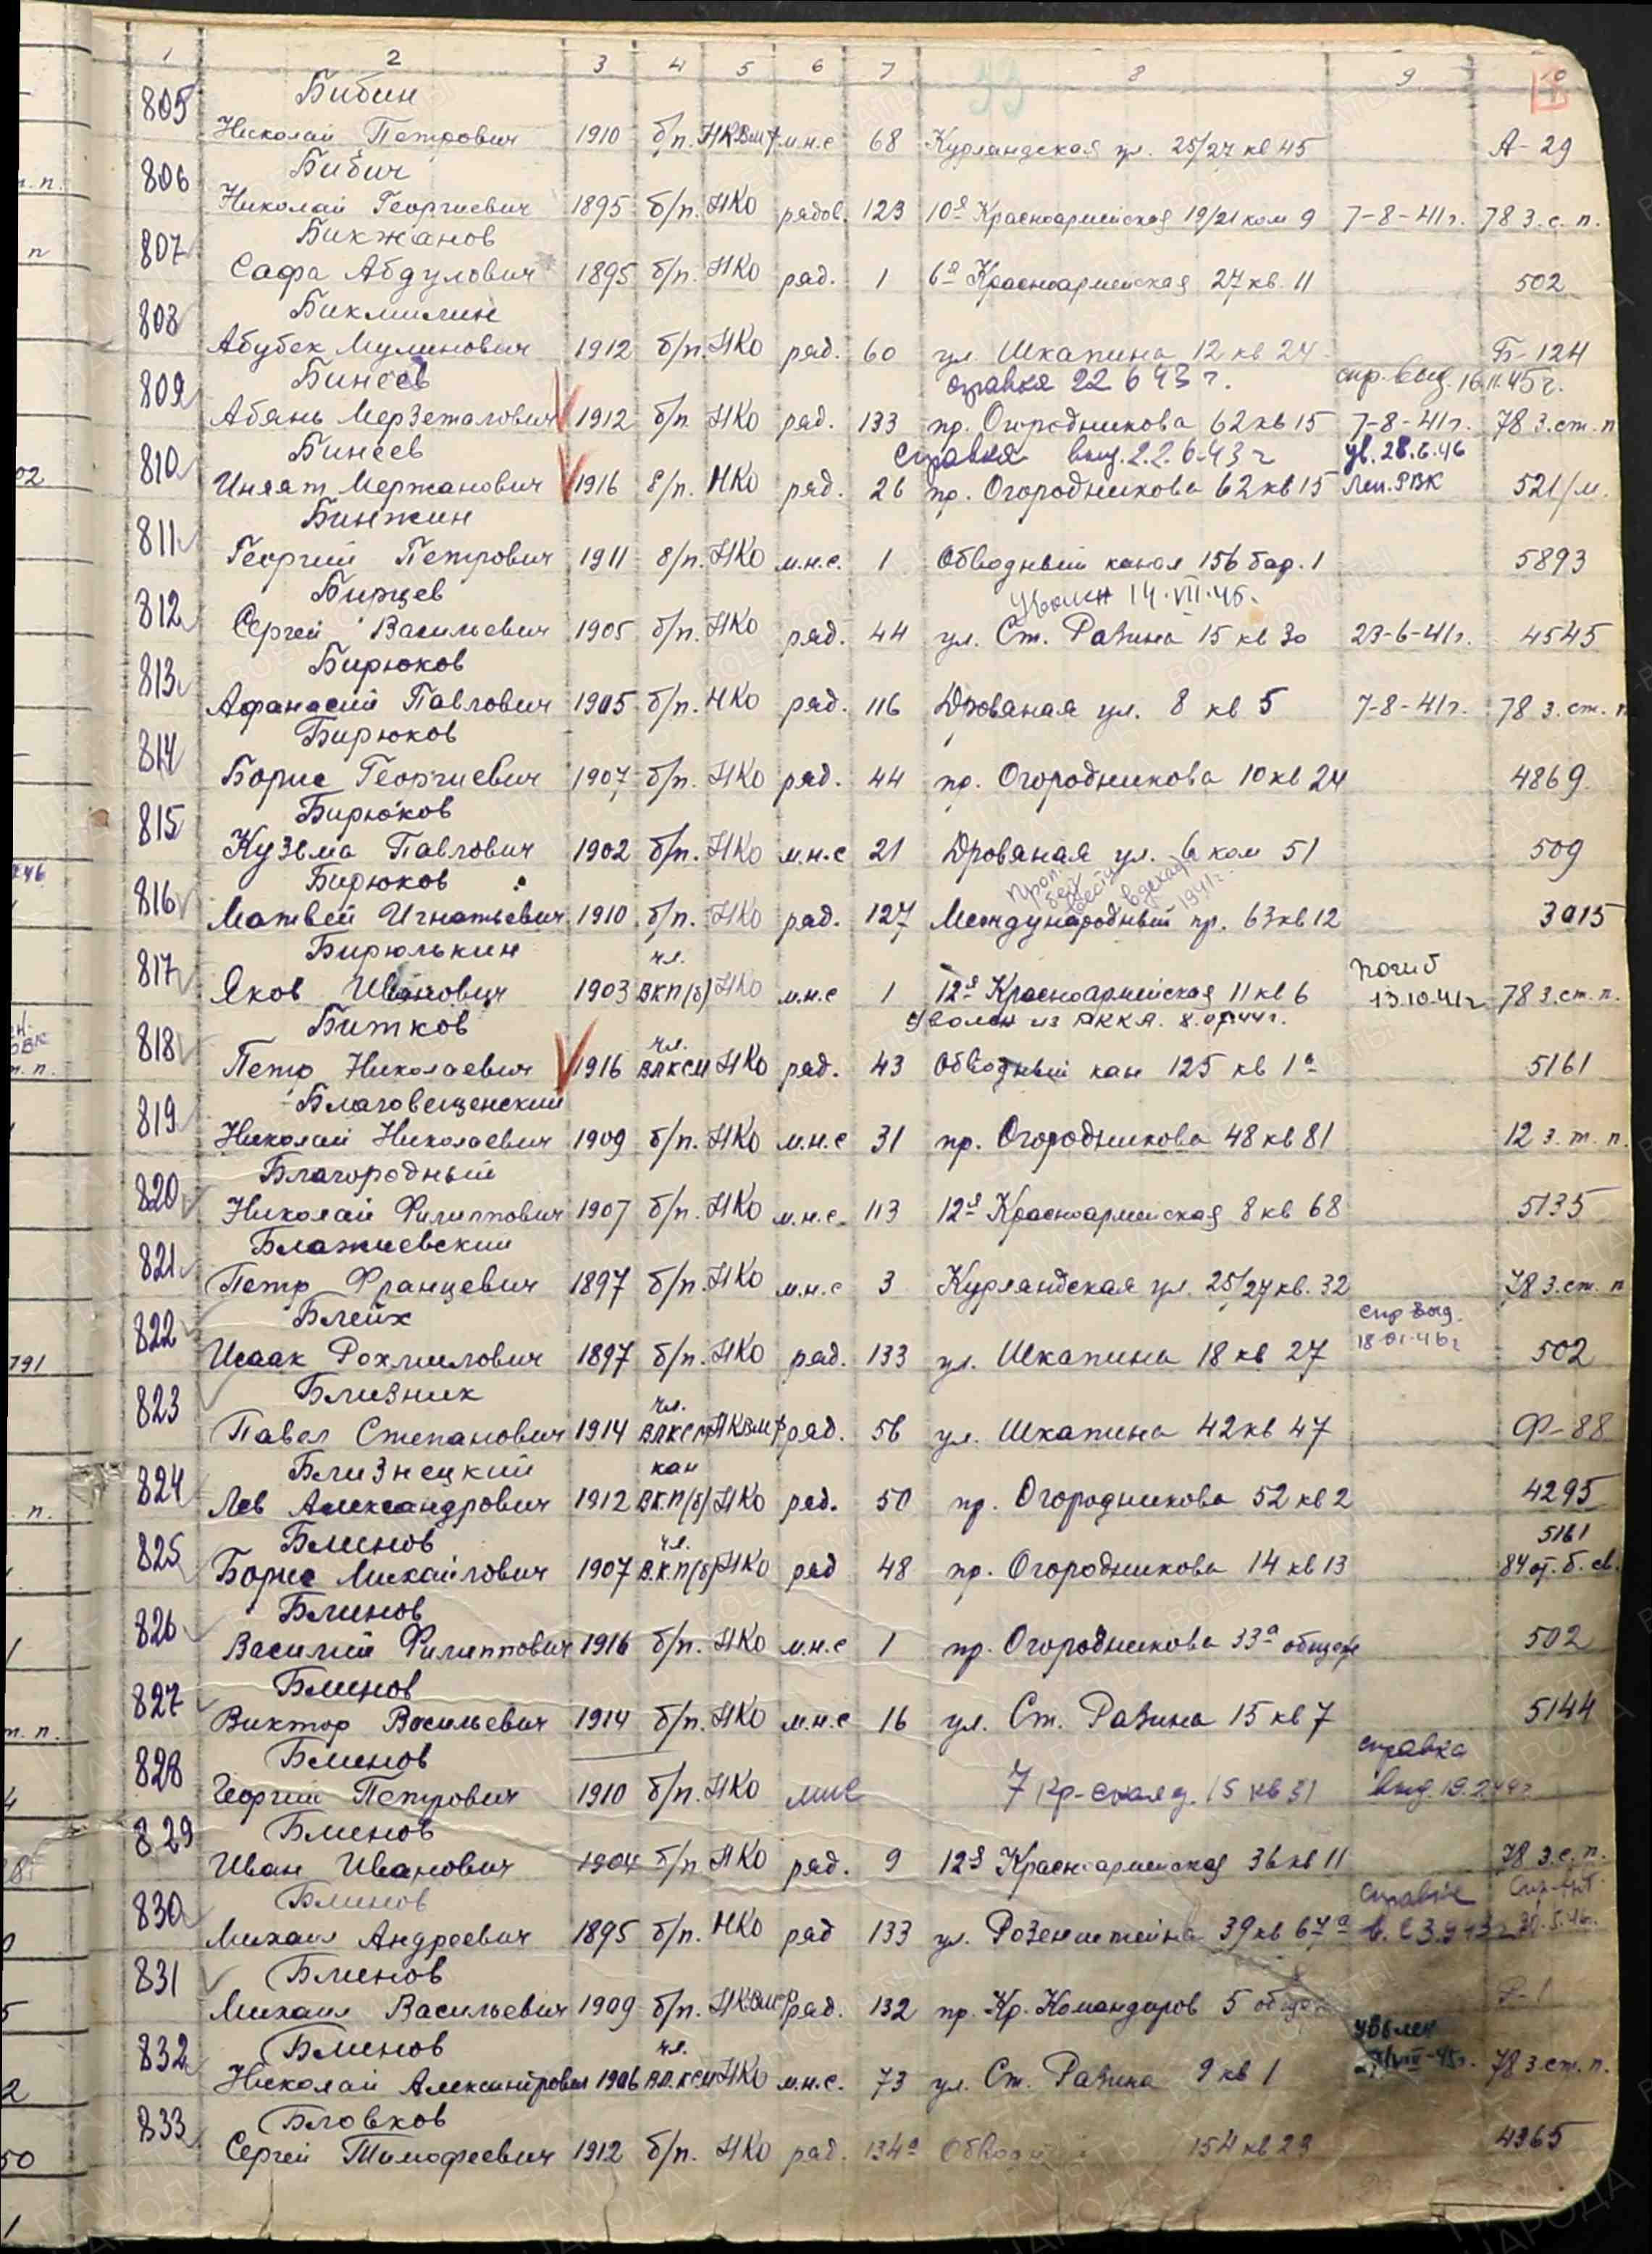 1 2 3 4 5 6 7 8 9 10
33
805 Бибин
Николай Петрович 1910 б/п. НКВмф м.н.с 68 Курляндская ул. 25/27 кв 45 А-29
806 Бибич
Николай Георгиевич 1895 б/п. НКО рядов. 123 10я Красноармейская 19/21 ком 9 7-8-41г. 78 з.с.п.
807 Бикжанов
Сафа Абдулович 1895 б/п. НКО ряд. 1 6я Красноармейская 27 кв. 11 502
808 Бикмилин
Абубек Мулинович 1912 б/п. НКО ряд. 60 ул. Шкапина 12 кв 24 Б-124
809 Бинеев справка 22 6 43 г. спр. выд. 16.11.45г.
Абянь Мерзеталович 1912 б/п НКО ряд. 133 пр. Огородникова 62 кв 15 7-8-41г. 78 з.ст.п
810 Бинеев справка выд. 22.6.43 г ув. 28.6.46
Иняят Мержанович 1916 б/п. НКО ряд. 26 пр. Огородникова 62 кв 15 Лен. РВК 521/м.
811 Бинжин
Георгий Петрович 1911 б/п. НКО м.н.с. 1 Обводный канал 156 бар. 1 5893
812 Бирцев уволен 14.VII.45.
Сергей Васильевич 1905 б/п. НКО ряд. 44 ул. Ст. Разина 15 кв 30 23-6-41г. 4545
813 Бирюков
Афанасий Павлович 1905 б/п. НКО ряд. 116 Дровяная ул. 8 кв 5 7-8-41г. 78 з.ст.п
814 Бирюков
Борис Георгиевич 1907 б/п. НКО ряд. 44 пр. Огородникова 10 кв 24 4869
815 Бирюков
Кузьма Павлович 1902 б/п. НКО м.н.с 21 Дровяная ул. 6 ком 51 509
816 Бирюков Проп. без вести в декабре 1941г.
Матвей Игнатьевич 1910 б/п. НКО ряд. 127 Международный пр. 63 кв 12 3015
817 Бирюлькин чл. погиб
Яков Иванович 1903 ВКП(б) НКО м.н.с 1 12я Красноармейская 11 кв 6 13.10.41г 78 з.ст.п.
818 Битков чл. уволен из РККА. 8.07.44г.
Петр Николаевич 1916 ВЛКСМ НКО ряд. 43 Обводный кан 125 кв 1а 5161
819 Благовещенский
Николай Николаевич 1909 б/п. НКО м.н.с 31 пр. Огородникова 48 кв 81 12 з.т.п.
820 Благородный
Николай Филиппович 1907 б/п. НКО м.н.с. 113 12я Красноармейская 8 кв 68 5135
821 Блажиевский
Петр Францевич 1897 б/п. НКО м.н.с 3 Курляндская ул. 25/27 кв. 32 78 з.ст.п
822 Блейх спр выд.
Исаак Рохмилович 1897 б/п. НКО ряд. 133 ул. Шкапина 18 кв 27 18.01.46г 502
823 Близник чл.
Павел Степанович 1914 ВЛКСМ НКВмф ряд. 56 ул. Шкапина 42 кв 47 Ф-88
824 Близнецкий кан
Лев Александрович 1912 ВКП(б) НКО ряд. 50 пр. Огородникова 52 кв 2 4295
825 Блинов чл. 5161
Борис Михайлович 1907 В.К.П(б) НКО ряд 48 пр. Огородникова 14 кв 13 84 от. б. св.
826 Блинов
Василий Филиппович 1916 б/п. НКО м.н.с 1 пр. Огородникова 33а общеж 502
827 Блинов
Виктор Васильевич 1914 б/п. НКО м.н.с 16 ул. Ст. Разина 15 кв 7 5144
828 Блинов справка
Георгий Петрович 1910 б/п. НКО мнс 7 Кр-ская д. 15 кв 51 выд. 19.2.44г
829 Блинов
Иван Иванович 1904 б/п. НКО ряд. 9 12я Красноармейская 36 кв 11 78 з.с.п.
830 Блинов справка
Михаил Андреевич 1895 б/п. НКО ряд 133 ул. Розенштейна 39 кв 67а 30.5.46г.
831 Блинов
Михаил Васильевич 1909 б/п. НКВмф ряд. 132 пр. Кр. Командиров 5 общеж Р-1
832 Блинов чл. уволен
Николай Александрович 1906 ВЛКСМ НКО м.н.с. 73 ул. Ст. Разина 9 кв 1 VIII-45г. 78 з.ст.п.
833 Бловков
Сергей Тимофеевич 1912 б/п. НКО ряд. 134а Обводн 154 кв 23 4365